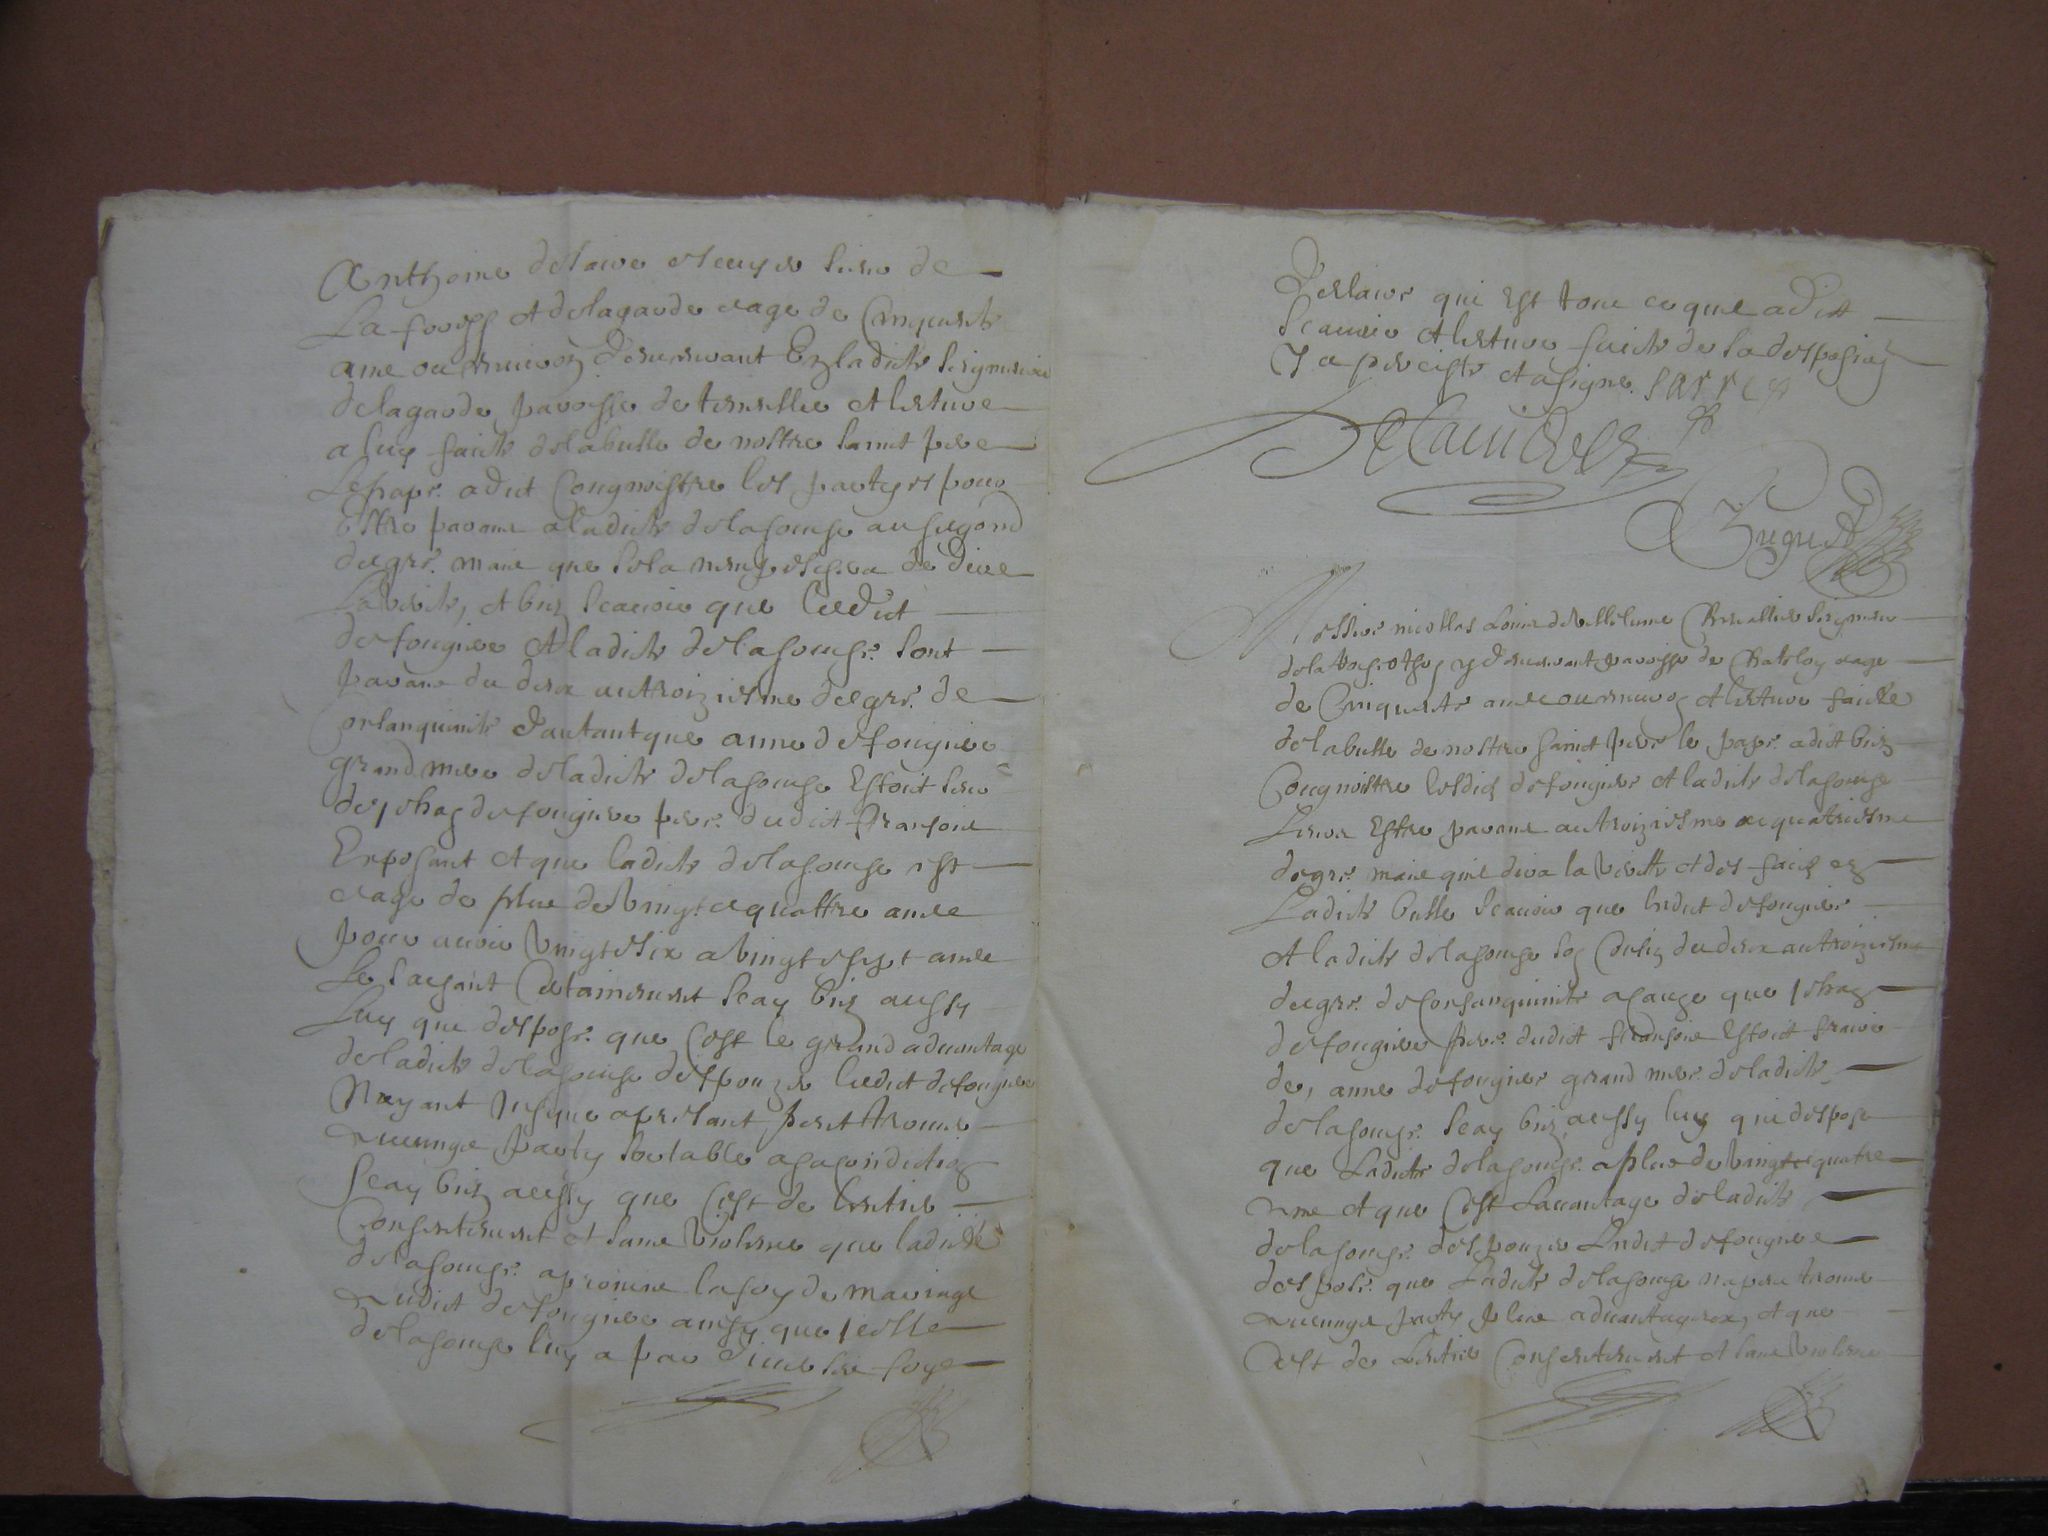 Anthoine delaire escuyer sieur de
La forest et delagarde eage de Cinquante
ans ou environ demeurant En ladicte seigneurie
delagarde parroisse de et lecture
a luy faicte delabulle de nostre sainct pere
Lepape a dict Congnoistre les partyes pour
Estre parant a ladicte delasouche au segond
degre mais que sela nempeschera de dire
La verite, et bien scauoir que ledict
defougiere et ladicte delasouche sont
parans du deux au troiziesme degre de
consanguinite d'autant que anne defougiere
grand mere deladicte delasouche Estoit seur
de Jehan defougiere pere dudict fransois
Exposant et que ladicte delasouche est
eage de plus de vingt e quattre ans
pour auoir vingt e six a vingt e sept ans
Le sachant Certainement scay bien aussy
Luy qui despose que Cest le grand aduantage
deladicte delasouche despouzer ledict defougiere
Nayant Jusques a presant peut trouuer
aucungs party sortable a sa condiction
scay bien aussy que Cest de lentier
Consentement et sans violence que ladicte
delasouche a promis la foy de mariage
audict defougiere ainsy que Jcelle
delasouche luy a par diuerses foys
desclaire qui Est tout ce que a dict
scauoir et lecture faicte de sa desposion
y a perciste et a signe
Messire nicollas Louis devillelume Chevallier seigneur
demeurant parroisse de Chateloy eage
de Cinquante ans ou environ et lecture faicte
delabulle de nostre sainct pere le pape a dict bien
Congnoistre lesdicts defougiere et ladicte delasouche
Estre parans au troiziesme au quatriesme
degre mais quil dira la verite et des faicts en
Ladicte bulle scauoir que Ledict defougiere
et ladicte delasouche son Cousin du deux au troiziesme
degre de consanguinite a cauze que Jehan
defougiere pere dudict fransois Estoit fraire
de, anne defougiere grand mere deladicte
delasouche scay bien aussy luy qui despose
que Ladicte delasouche a plus de vingt e quatre
ans et que Cest Lauantage deladicte
delasouche despouzer Ledict defougiere
despose que Ladicte delasouche na peu trouuer
aucungs party plus aduantageux, et que
Cest de Lentier Consentement et sans violence